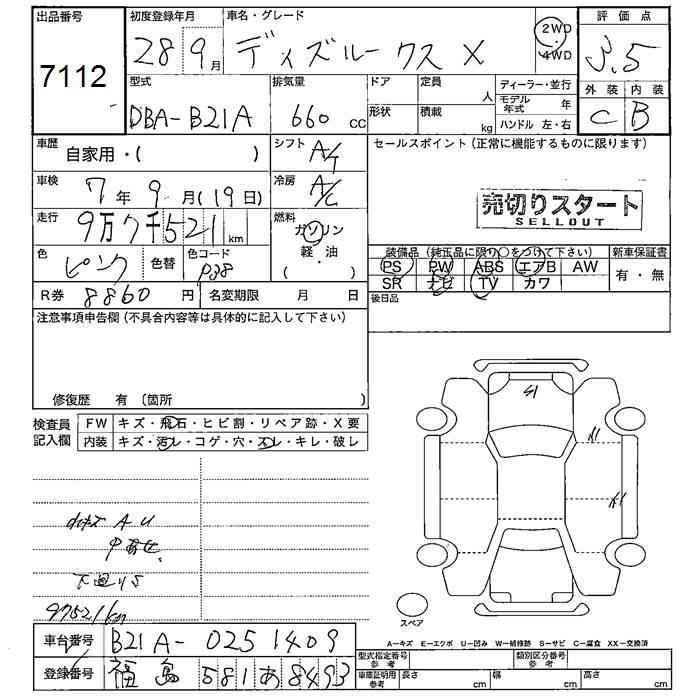 出品番号
7112
初度登録年月
28 9月
車名・グレード
ディズルークス X
2WD
4WD
評価点
3.5
外装 内装
C B
型式
DBA-B21A
排気量
660 CC
ドア
形状
定員
人
積載
kg
ディーラー・並行
モデル年式 年
ハンドル 左・右
車歴
自家用・( )
シフト
A/T
セールスポイント(正常に機能するものに限ります)
車検
7年9月(19日)
冷房
A/C
売切りスタート
SELLOUT
走行
9万7千521km
燃料
ガソリン
軽・油
( )
色
ピンク
色替
色コード
P38
装備品(純正品に限り○をつけて下さい)
新車保証書
PS PW ABS エアB AW
SR ナビ TV カワ
有・無
R券 8860円
名変期限 月 日
後日品
注意事項申告欄(不具合内容等は具体的に記入して下さい)
修復歴 有〔箇所 〕
検査員記入欄
FW キズ・飛石・ヒビ割・リペア跡・X要
内装 キズ・汚レ・コゲ・穴・スレ・キレ・破レ
A U
下廻りS
97521km
スペア
A-キズ E-エクボ U-凹み W-補修跡 S-サビ C-腐食 XX-交換済
車台番号 B21A-0251409
登録番号 福島 581 あ 8493
型式指定番号
参考
類別区分番号
参考
車庫証明用
参考
長さ cm
幅 cm
高さ cm